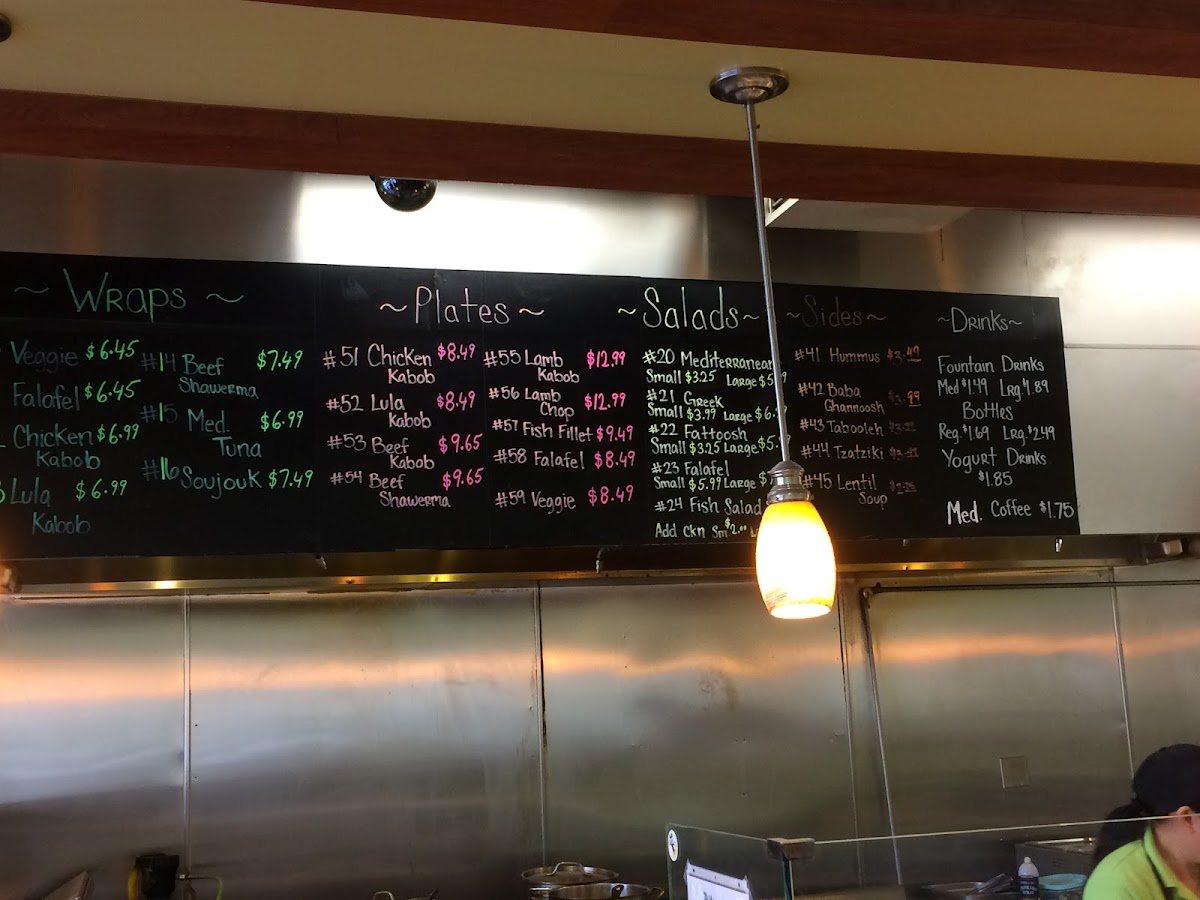 ~ Wraps ~
Veggie $6.45
Falafel $6.45
Chicken $6.99
Kabob
Lula $6.99
Kabob
#14 Beef $7.49
Shawerma
#15 Med. $6.99
Tuna
#16 Soujouk $7.49
~Plates~
#51 Chicken $8.49
Kabob
#52 Lula $8.49
Kabob
#53 Beef $9.65
Kabob
#54 Beef $9.65
Shawerma
#55 Lamb $12.99
Kabob
#56 Lamb $12.99
Chop
#57 Fish Fillet $9.49
#58 Falafel $8.49
#59 Veggie $8.49
~Salads~
#20 Mediterranean
Small $3.25 Large
#21 Greek
Small $3.99 Large
#22 Fattoosh
Small $3.25 Large
#23 Falafel
Small $5.99 Large
#24 Fish Salad
Add ckn Sm $2.00
~Sides~
#41 Hummus
#42 Baba
Ghannoosh
#43 Tabooleh
#44 Tzatziki
#45 Lentil
Soup
~Drinks~
Fountain Drinks
Med $1.49 Lrg. $1.89
Bottles
Reg. $1.69 Lrg. $2.49
Yogurt Drinks
$1.85
Med. Coffee $1.75